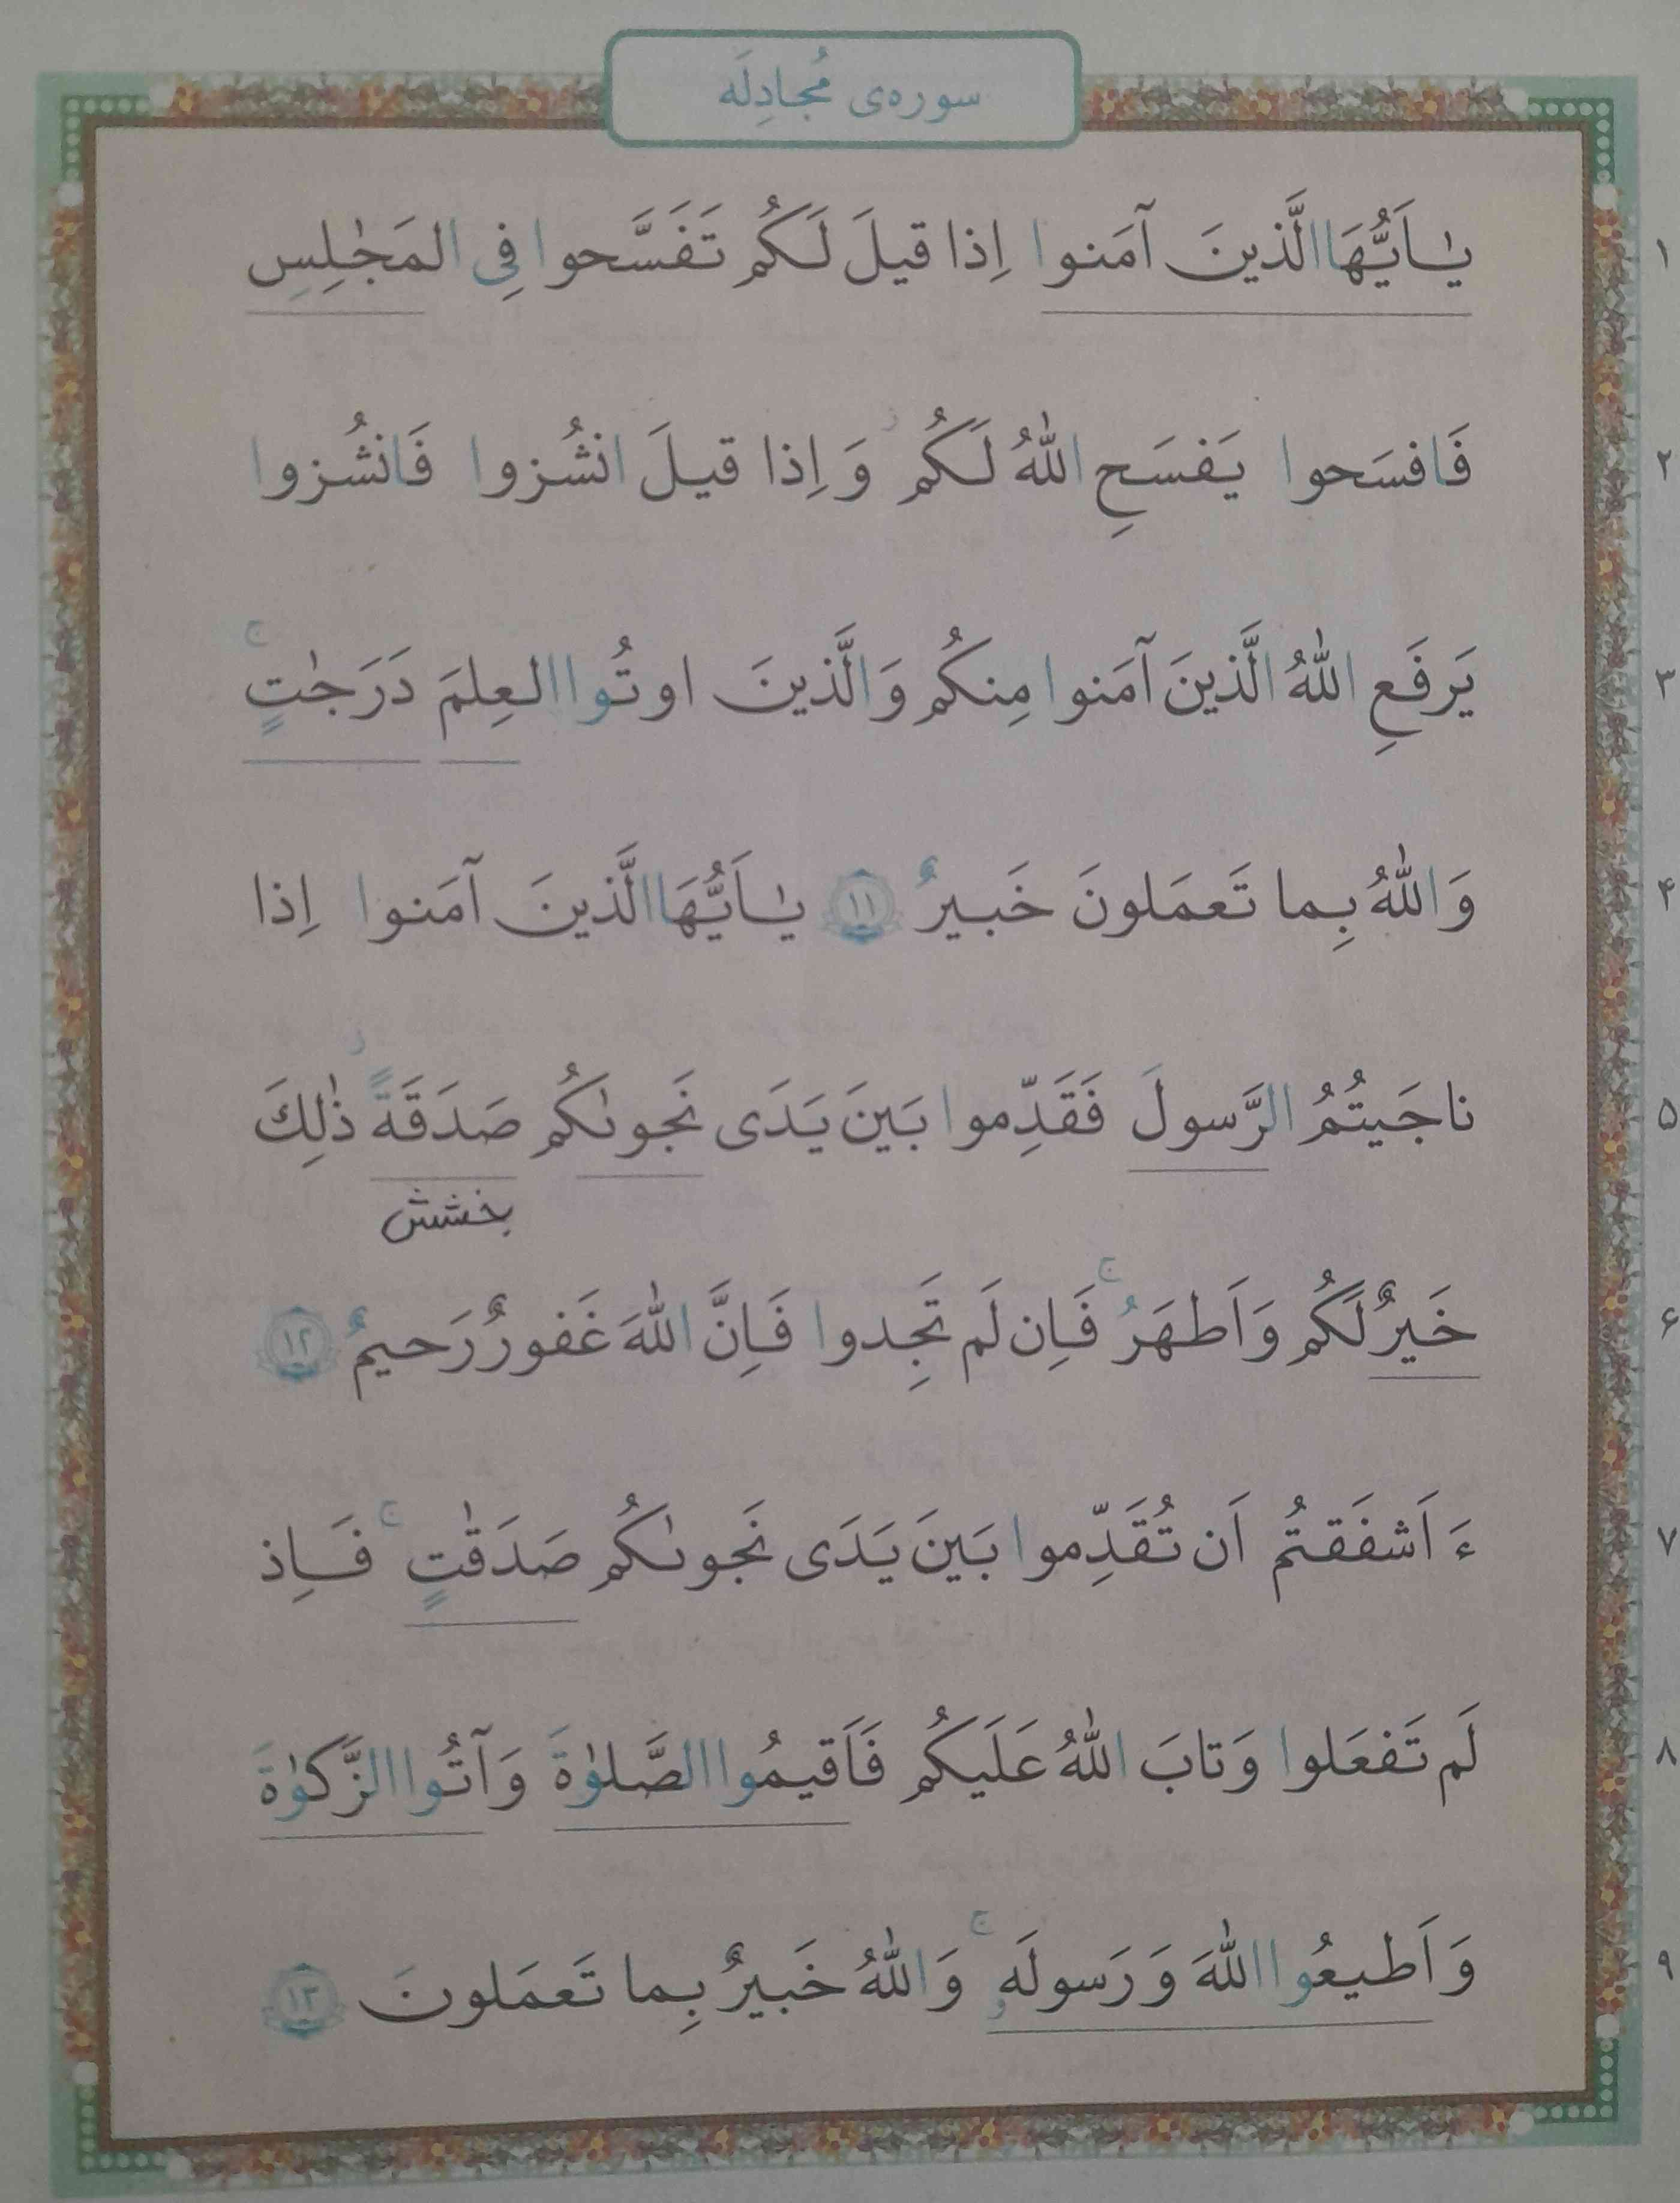 سوره‌ی مُجادِلَه
۱ یـٰاَیُّهَا الَّذینَ آمَنوا اِذا قیلَ لَکُم تَفَسَّحوا فِی المَجـٰلِسِ
۲ فَافسَحوا یَفسَحِ اللّٰهُ لَکُم ز وَ اِذا قیلَ انشُزوا فَانشُزوا
۳ یَرفَعِ اللّٰهُ الَّذینَ آمَنوا مِنکُم وَ الَّذینَ اوتُوا العِلمَ دَرَجـٰتٍ ج
۴ وَ اللّٰهُ بِما تَعمَلونَ خَبیرٌ ۱۱ یـٰاَیُّهَا الَّذینَ آمَنوا اِذا
۵ ناجَیتُمُ الرَّسولَ فَقَدِّموا بَینَ یَدَی نَجوىٰکُم صَدَقَةً ذٰلِكَ
بخشش
۶ خَیرٌ لَکُم وَ اَطهَرُ ج فَاِن لَم تَجِدوا فَاِنَّ اللّٰهَ غَفورٌ رَحیمٌ ۱۲
۷ ءَ اَشفَقتُم اَن تُقَدِّموا بَینَ یَدَی نَجوىٰکُم صَدَقـٰتٍ ج فَاِذ
۸ لَم تَفعَلوا وَ تابَ اللّٰهُ عَلَیکُم فَاَقیمُوا الصَّلوٰةَ وَ آتُوا الزَّکوٰةَ
۹ وَ اَطیعُوا اللّٰهَ وَ رَسولَهو ج وَ اللّٰهُ خَبیرٌ بِما تَعمَلونَ ۱۳